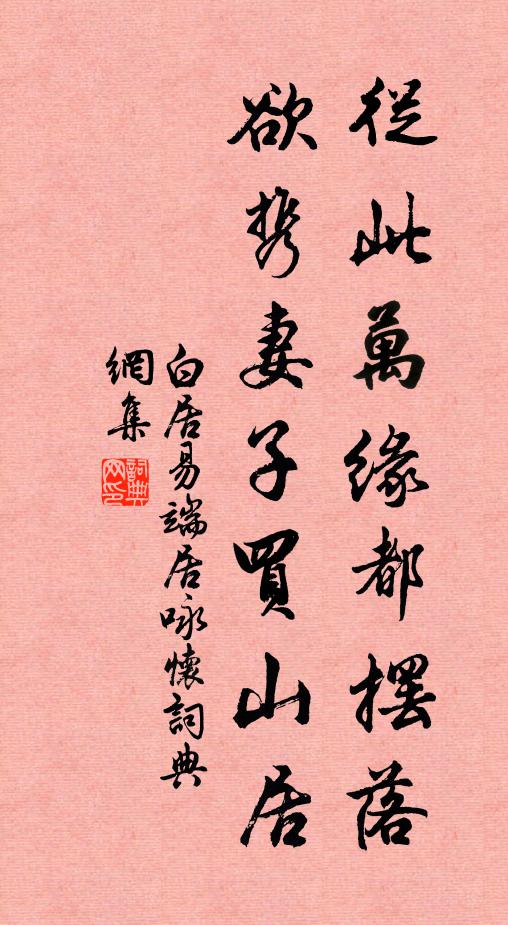 從此萬緣都擺落
欲携妻子買山居
白居易端居咏懷詞典
網集
詞典
网印